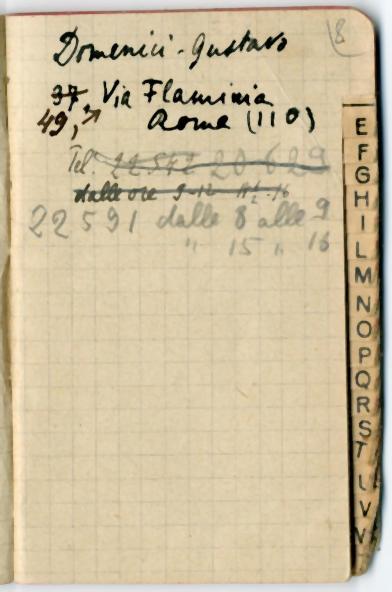 8
Domenici - Gustavo
37 Via Flaminia
49, Roma (110)
Tel. 22542 20629
dalle ore 9-12
22591 dalle 8 alle 9
" 15 " 16
E
F
G
H
I
L
M
N
O
P
Q
R
S
T
U
V